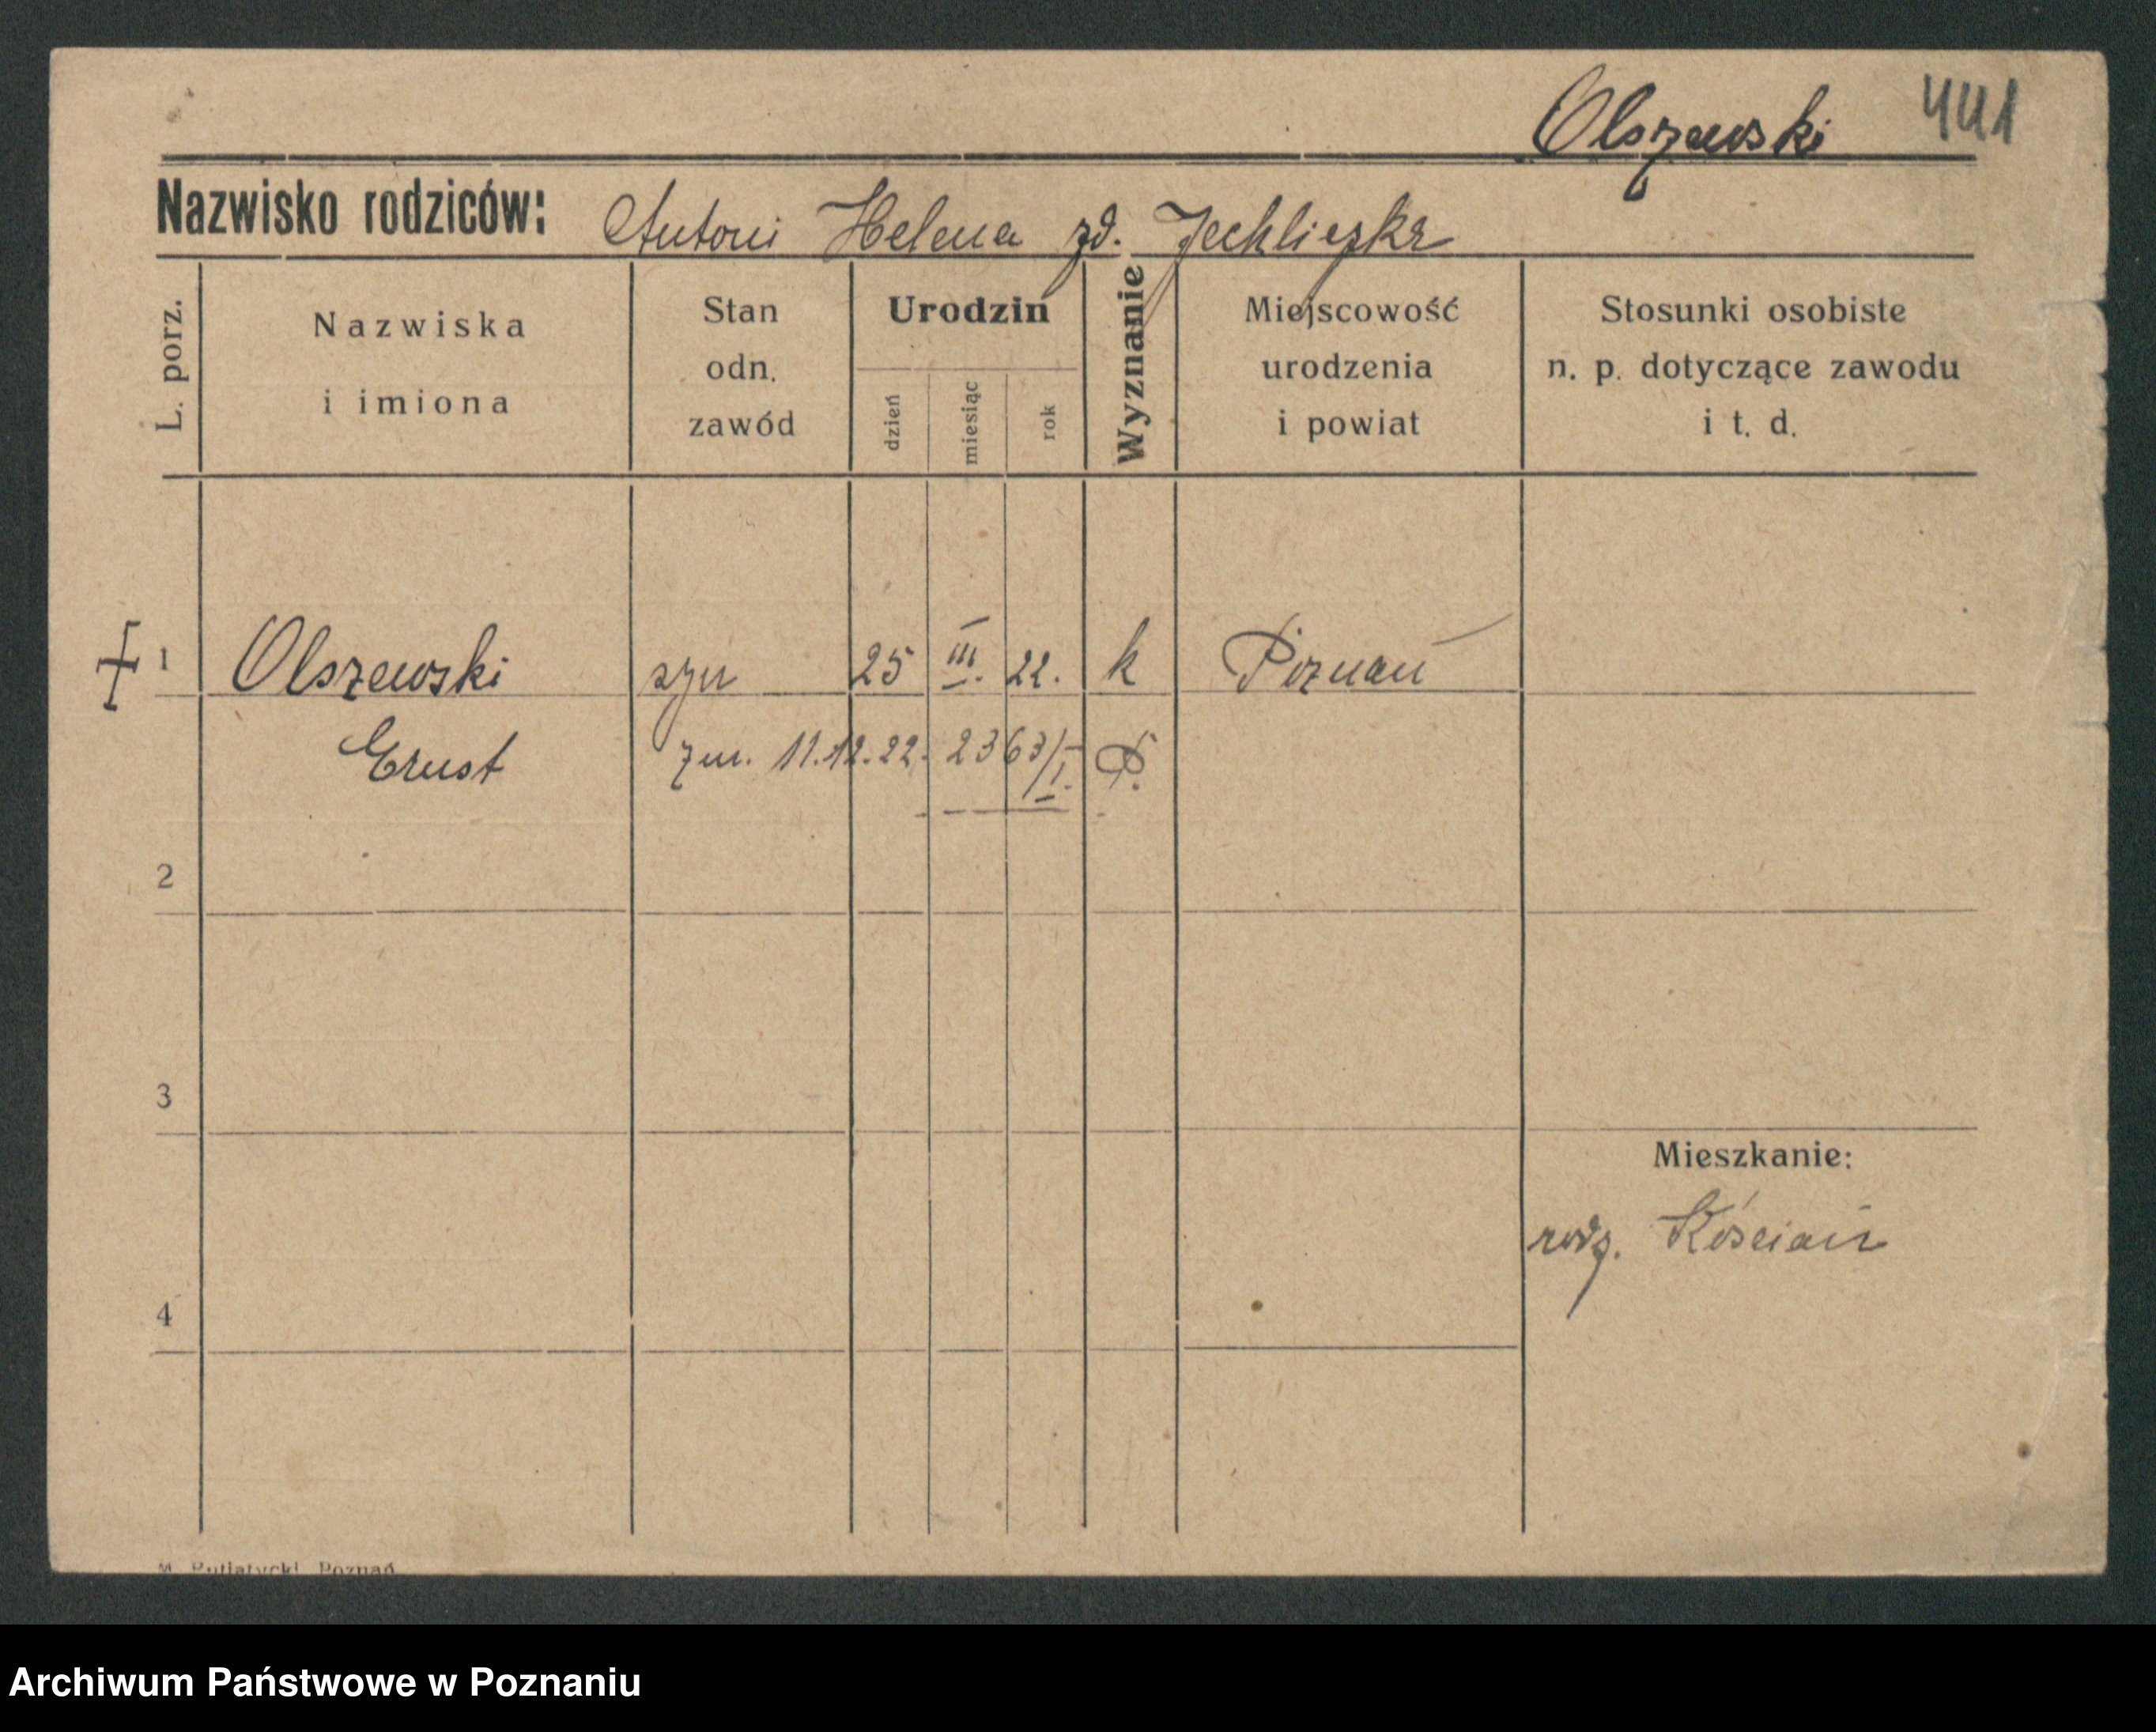 Olszewski 441
Nazwisko rodziców: Antoni Helena zd.
L. porz.
Nazwiska
i imiona
Stan
odn.
zawód
Urodzin
dzień
miesiąc
rok
Wyznanie
Miejscowość
urodzenia
i powiat
Stosunki osobiste
n. p. dotyczące zawodu
i t. d.
1 Olszewski syn 25 III. 22. k Poznań
Ernst zm. 11.12.22. 2363/I. P.
2
3
Mieszkanie:
rodz. Kościan
4
Poznań
Archiwum Państwowe w Poznaniu